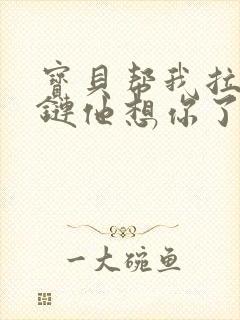 寶貝帮我拉
鏈他想你了
一大碗鱼